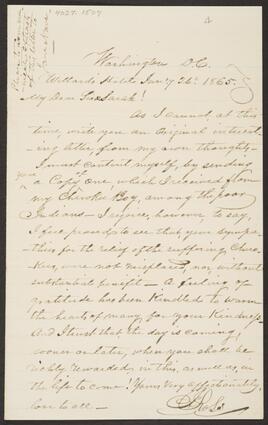 4027.1807
4
Please to
Washington D.C.
Willards Hotel Jany 26th 1865.
My Dear Sarah!
As I cannot, at this
time, write you an Original interest-
ing letter, from my own thoughts—
I must content myself, by sending
you a Copy of One which I received from
my Cherokee Boy, among the poor
Indians— I rejoice, however, to say,
I feel proud to see that, your sympa-
thies for the relief of the suffering Chero-
kees, were not misplaced, nor without
substantial benefit— A feeling of
gratitude has been Kindled to warm
the hearts of many for your Kindness.
And I trust that, the day is coming,
sooner or later, when you shall be
richly rewarded, in this, as well as, in
the life to come! Yours Very affectionately,
love to all—